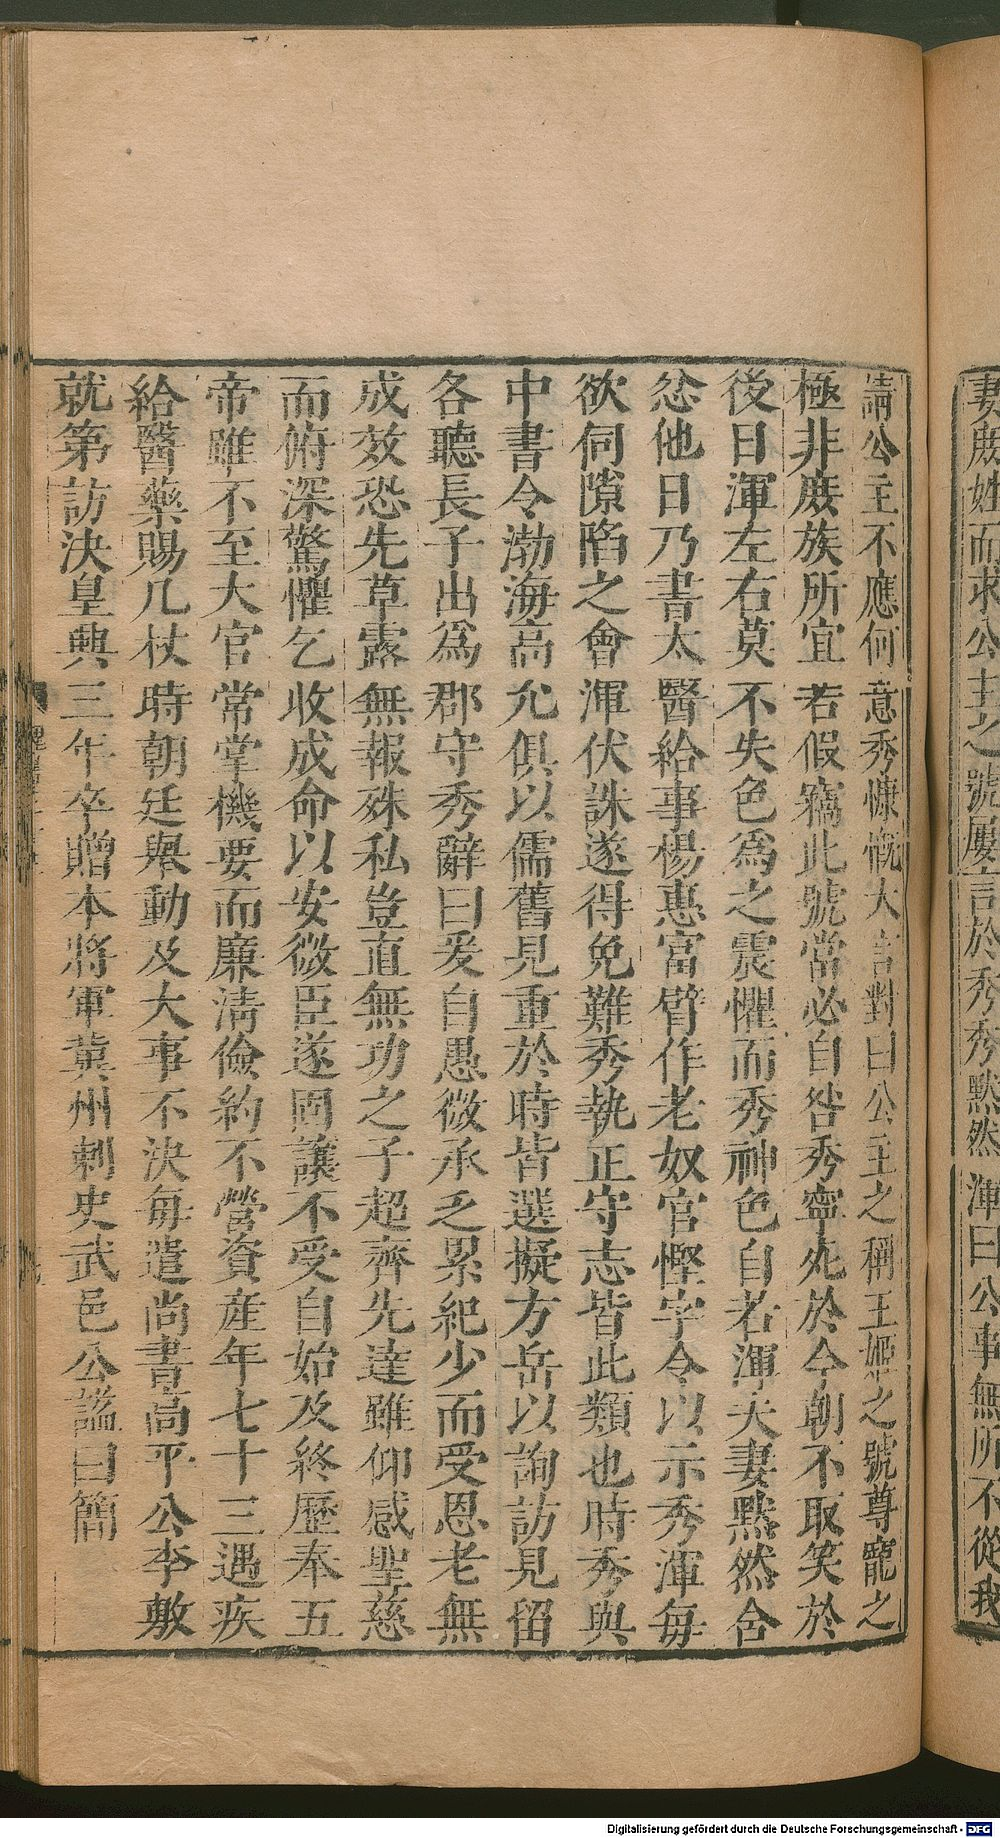 妻庶姓而求公主之號屢言於秀秀默然渾曰公事無所不從我
請公主不應何意秀慷慨大言對曰公主之稱王姬之號尊寵之
極非庶族所宜若假竊此號當必自咎秀寧死於今朝不取笑於
後日渾左右莫不失色爲之震懼而秀神色自若渾夫妻默然含
忿他日乃書太醫給事楊惠富臂作老奴官慳字令以示秀渾每
欲伺隙陷之會渾伏誅遂得免難秀執正守志皆此類也時秀與
中書令渤海高允俱以儒舊見重於時皆選擬方岳以詢訪見留
各聽長子出爲郡守秀辭曰爰自愚微承乏累紀少而受恩老無
成效恐先草露無報殊私豈直無功之子超齊先達雖仰感聖慈
而俯深驚懼乞收成命以安微臣遂固讓不受自始及終歷奉五
帝雖不至大官常掌機要而廉清儉約不營資產年七十三遇疾
給醫藥賜几杖時朝廷舉動及大事不決每遣尚書高平公李敷
就第訪決皇興三年卒贈本將軍冀州刺史武邑公謚曰簡
Digitalisierung gefördert durch die Deutsche Forschungsgemeinschaft - DFG